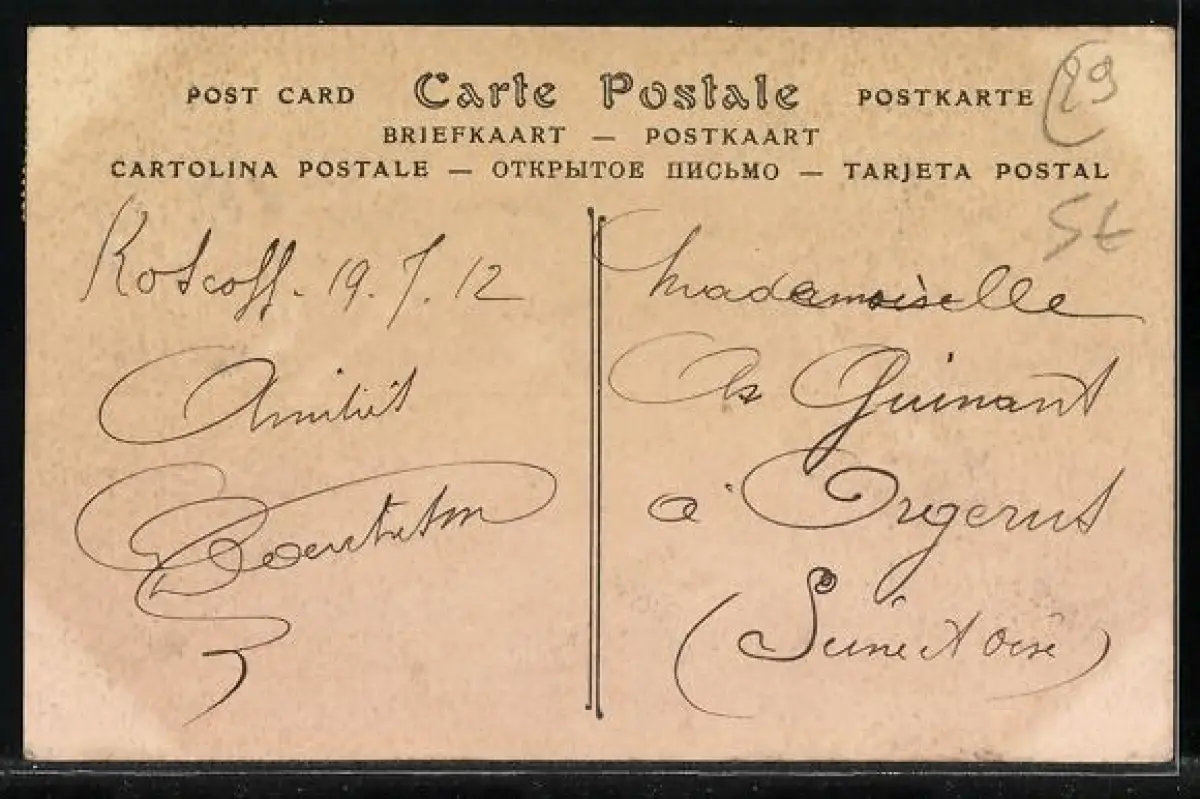 POST CARD Carte Postale POSTKARTE
BRIEFKAART — POSTKAART
CARTOLINA POSTALE — ОТКРЫТОЕ ПИСЬМО — TARJETA POSTAL
29
St
Roscoff. 19.7.12
Amitiés
Mademoiselle
Guinant
à Orgerus
(Seine et Oise)